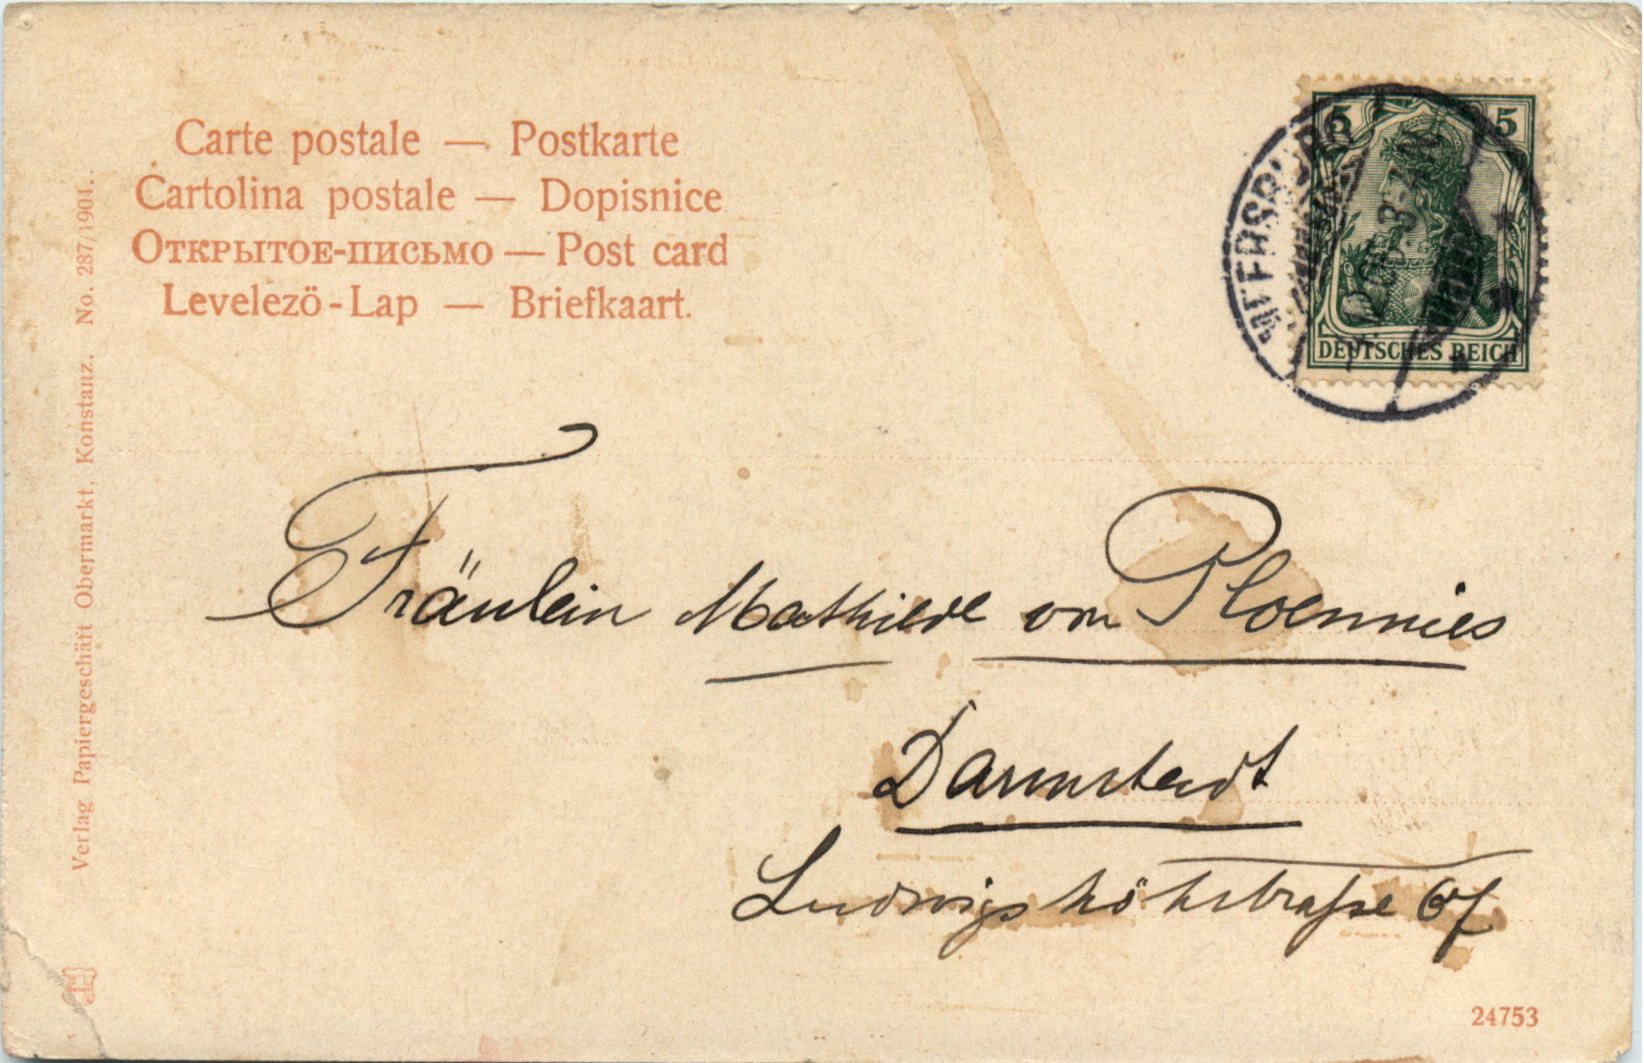 Carte postale — Postkarte
Cartolina postale — Dopisnice
Открытое-письмо — Post card
Levelezö-Lap — Briefkaart.
Verlag Papiergeschäft Obermarkt, Konstanz. No. 287/1904.
5 5
MEERSBURG
DEUTSCHES REICH
Fräulein Mathilde von Ploennies
Darmstadt
Ludwigshöhstraße
24753